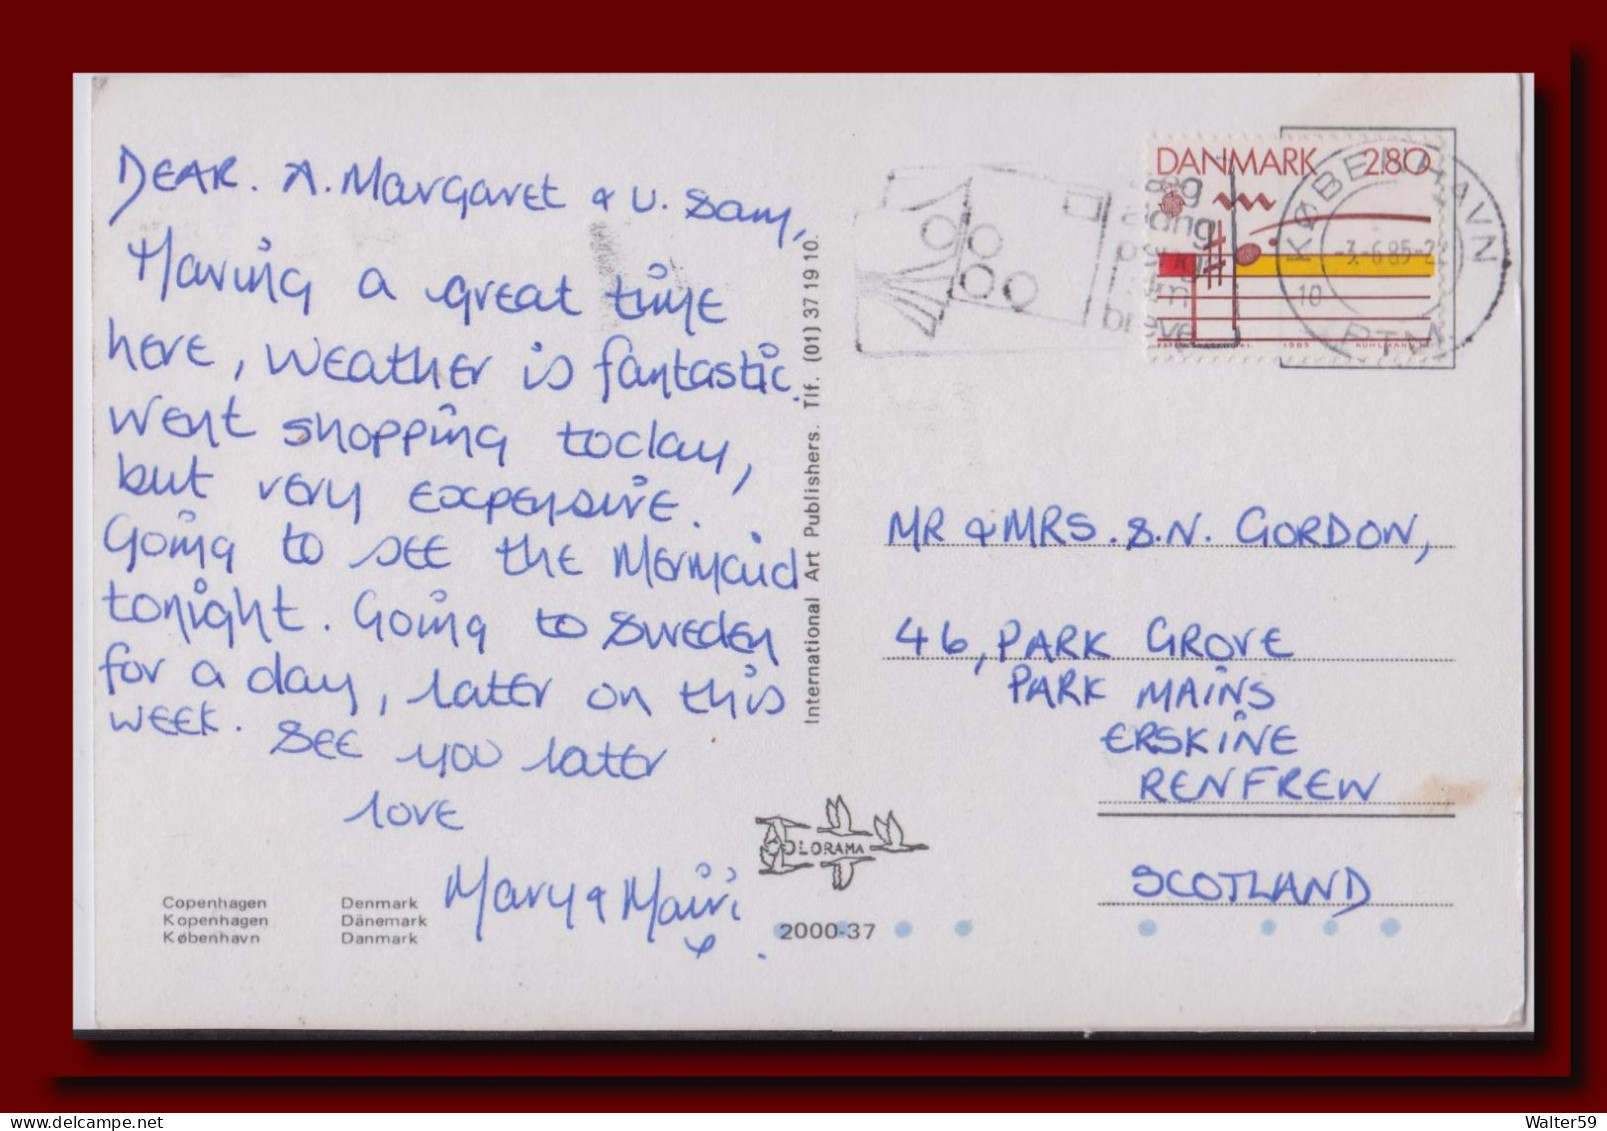 DEAR. A. Margaret & U. Sam,
Having a great time
here, weather is fantastic.
Went shopping today,
but very expensive.
Going to see the Mermaid
tonight. Going to Sweden
for a day, later on this
week. See you later
love
Mary & Mairi
x
Copenhagen Denmark
Kopenhagen Dänemark
København Danmark
International Art Publishers. Tlf. (01) 37 19 10.
COLORAMA
2000-37
DANMARK 2.80
1985
KØBENHAVN
-3.-6.85-22
10
PTM
breve
MR & MRS. S.N. GORDON,
46, PARK GROVE
PARK MAINS
ERSKINE
RENFREW
SCOTLAND
Walter59